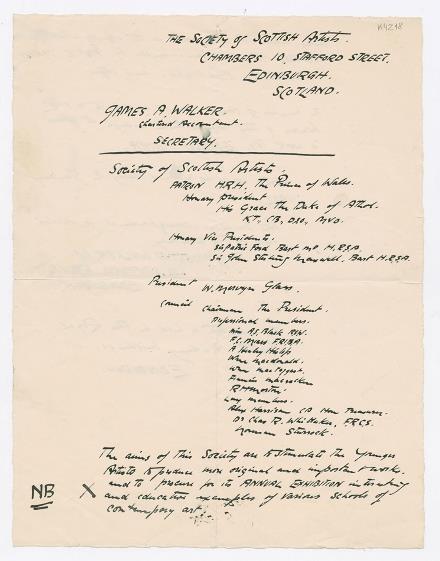 K4218
THE SOCIETY of SCOTTISH ARTISTS.
CHAMBERS 10, STAFFORD STREET.
EDINBURGH.
SCOTLAND.
JAMES A. WALKER.
Chartered Accountant.
SECRETARY.
Society of Scottish Artists.
PATRON H.R.H. The Prince of Wales.
Honary President
His Grace The Duke of Athol.
KT., CB, DSO., MVO.
Honary Vice Presidents.
Sir Patric Ford Bart MP H.R.S.A.
Sir John Stirling Maxwell. Bart H.R.S.A.
President W. Mervyn Glass.
Council Chairman The President.
Professional members.
Miss A.S. Black RSW.
F.C. Mears FRIBA.
A
Wm Macdonald.
Wm MacTaggart.
Francis
Lay members.
Alex Harrison CA Hon Treasurer.
Dr Chas R. Whittaker, F.R.C.S.
Norman
The aims of this Society are to stimulate the Younger
Artists to produce more original and important work.
and to procure for its ANNUAL EXHIBITION interesting
NB X and education examples of various schools of
contempory art.